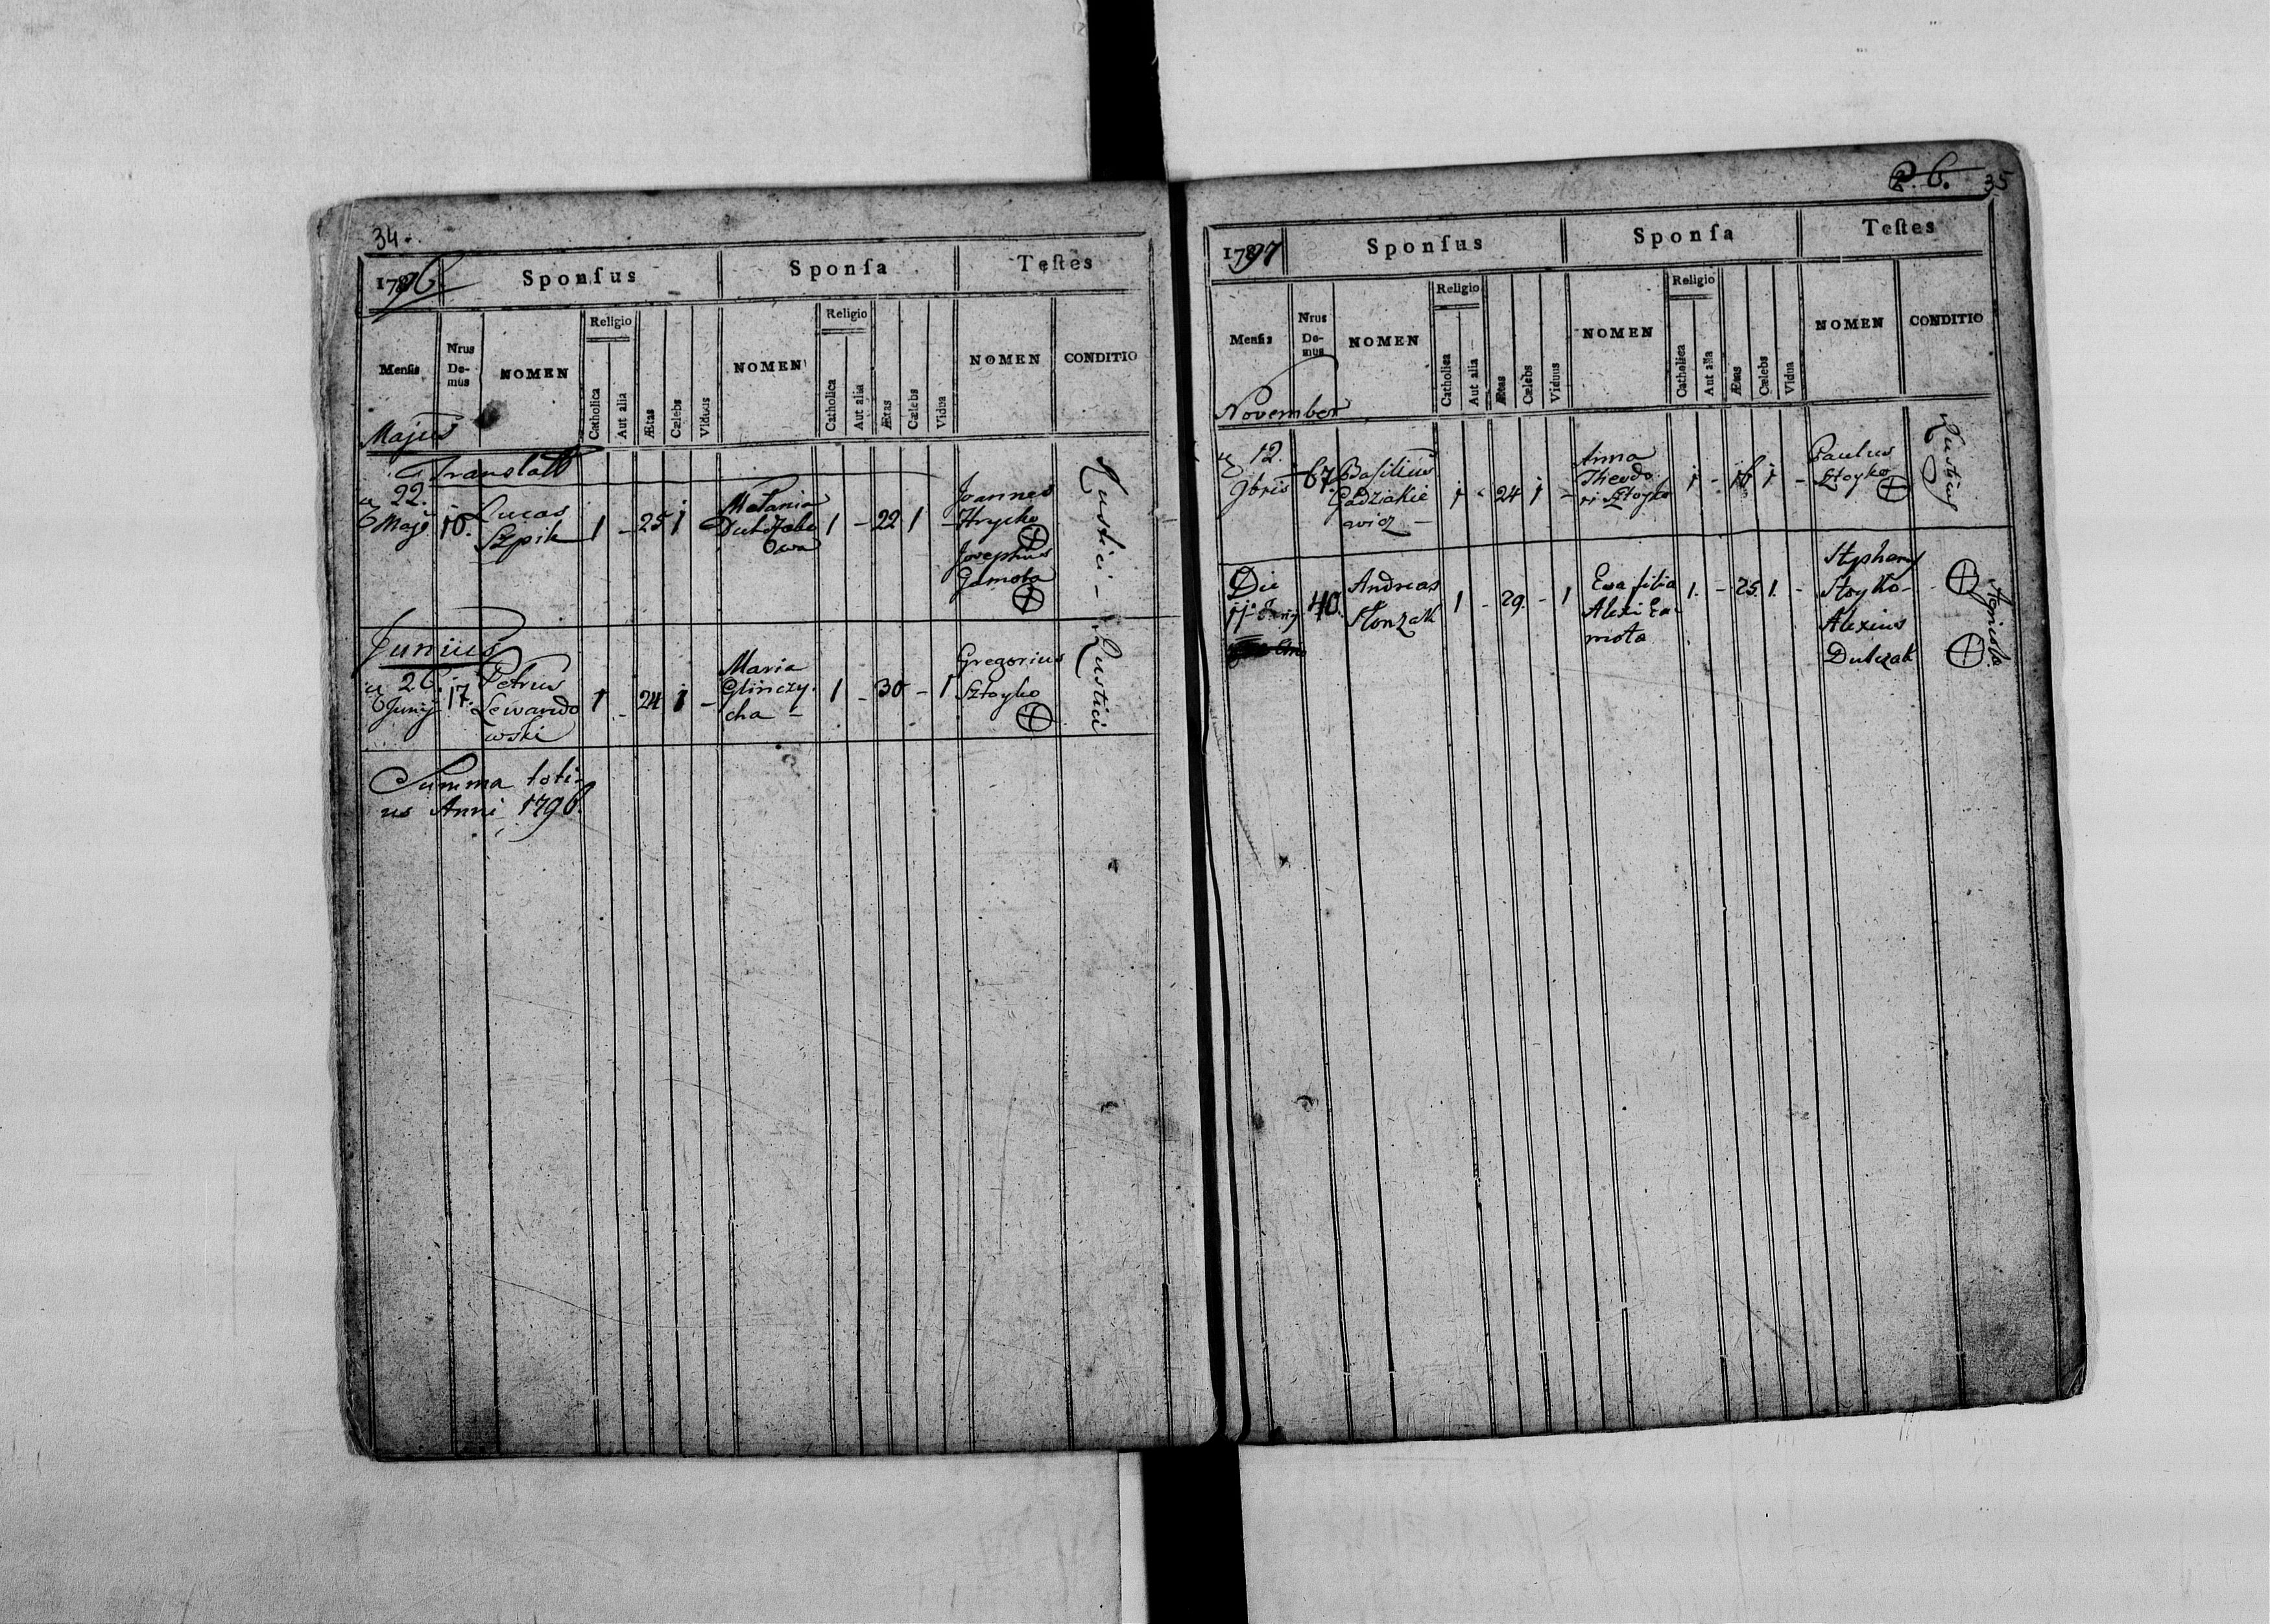 34.
1796
Sponſus
Sponſa
Teſtes
Menſis
Nrus Domus
NOMEN
Religio
Catholica
Aut alia
Ætas
Cælebs
Viduus
NOMEN
Religio
Catholica
Aut alia
Ætas
Cælebs
Vidua
NOMEN
CONDITIO
Majus
Translatt
22. Maji 10. Lucas Szpik 1 - 25 1 - Matania 1 - 22 1 - Joannes Hrycko
Josephus Gamota
Rustici -
Junius
26. Junij 17. Petrus Lewando
wski 1 - 24 1 - Maria Glinczy
cha - 1 - 30 - 1 Gregorius Sztoyko
Rustici
Summa toti-
us Anni 1796.
35
1797
Sponſus
Sponſa
Teſtes
Menſis
Nrus Domus
NOMEN
Religio
Catholica
Aut alia
Ætas
Cælebs
Viduus
NOMEN
Religio
Catholica
Aut alia
Ætas
Cælebs
Vidua
NOMEN
CONDITIO
November
12. 9bris 67 Basilius Gadziakie
wicz - 1 - 24 1 - Anna Theodo
ri Sztoyko 1 - 16 1 - Paulus Sztoyko
Rusticus
Die 40. Andreas Slonzak 1 - 29. - 1 Eva filia Alexi Ga-
mota 1. - 25. 1. - Stephany
Stoyko -
Alexius
Dubczak